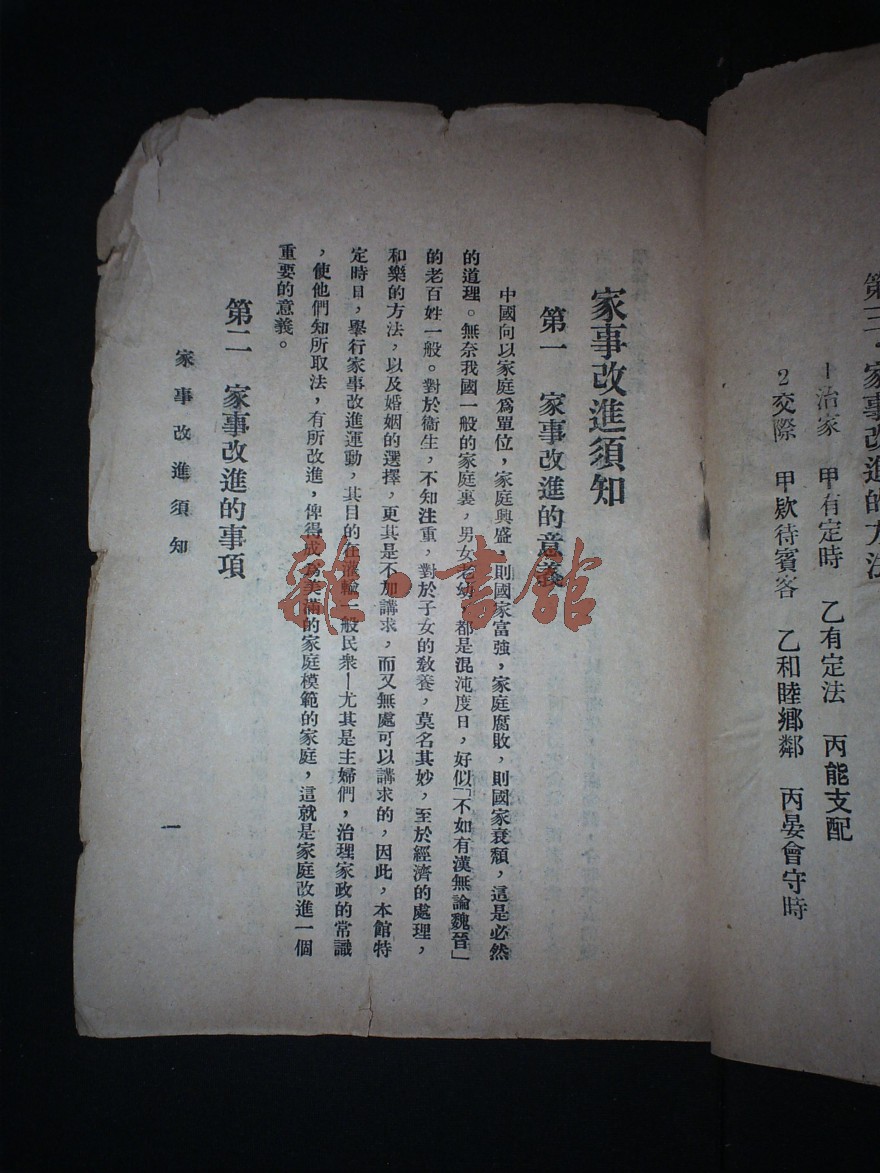 第三·家事改進的方法
1治家　甲有定時　乙有定法　丙能支配
2交際　甲欵待賓客　乙和睦鄉鄰　丙宴會守時
家事改進須知
第一　家事改進的意義
中國向以家庭爲單位，家庭興盛，則國家富強，家庭腐敗，則國家衰頹，這是必然
的道理。無奈我國一般的家庭裏，男女老幼，都是混沌度日，好似「不如有漢無論魏晉」
的老百姓一般。對於衞生，不知注重，對於子女的敎養，莫名其妙，至於經濟的處理，
和樂的方法，以及婚姻的選擇，更其是不加講求，而又無處可以講求的，因此，本館特
定時日，舉行家事改進運動，其目的在灌輸一般民衆—尤其是主婦們，治理家政的常識
，使他們知所取法，有所改進，俾得成爲美滿的家庭模範的家庭，這就是家庭改進一個
重要的意義。
第二　家事改進的事項
家事改進須知
一
雜·書館